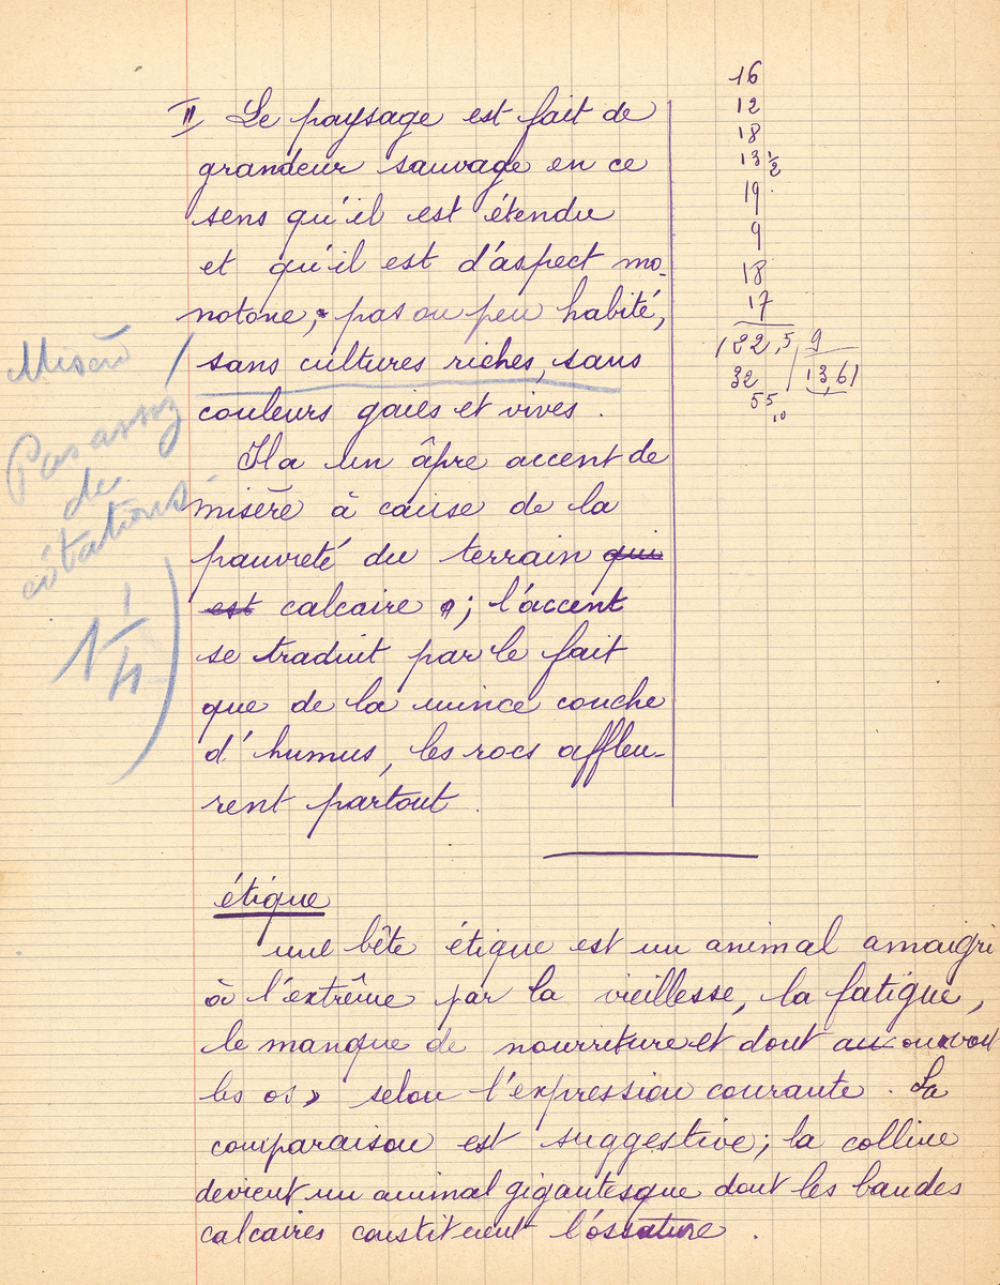 II Le paysage est fait de
grandeur sauvage en ce
sens qu'il est étendu
et qu'il est d'aspect mo-
notone, pas ou peu habité,
sans cultures riches, sans
couleurs gaies et vives.
Il a un âpre accent de
misère à cause de la
pauvreté du terrain qui
est calcaire ; l'accent
se traduit par le fait
que de la mince couche
d'humus, les rocs affleu-
rent partout.
Misère
Pas assez
de
citations
1 1/4
16
12
18
13 1/2
19
9
18
17
122,5 9
32 13,61
55
10
étique
une bête étique est un animal amaigri
à l'extrême par la vieillesse, la fatigue,
le manque de nourriture et dont on voit
les os » selon l'expression courante. La
comparaison est suggestive ; la colline
devient un animal gigantesque dont les bandes
calcaires constituent l'ossature.